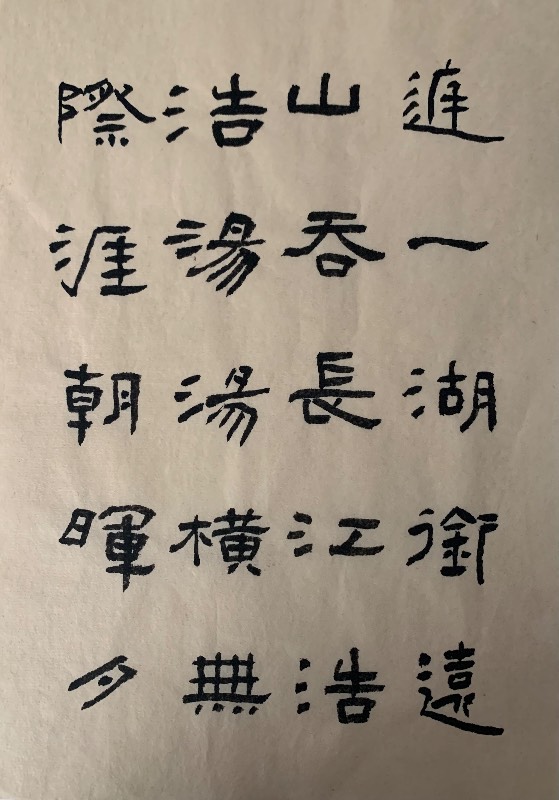 一湖銜遠
山吞長江浩
浩湯湯橫無
際涯朝暉夕